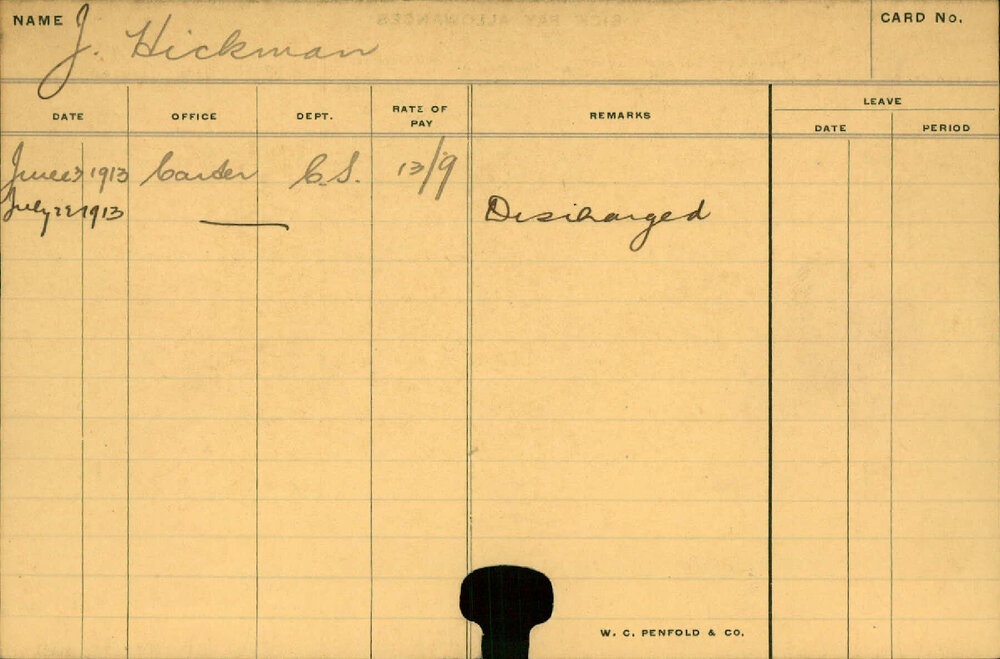 NAME J. Hickman
CARD No.
DATE OFFICE DEPT. RATE OF PAY REMARKS LEAVE
DATE PERIOD
June 3 1913 Carter C.S. 13/9
July 22 1913 — Discharged
W. C. PENFOLD & CO.